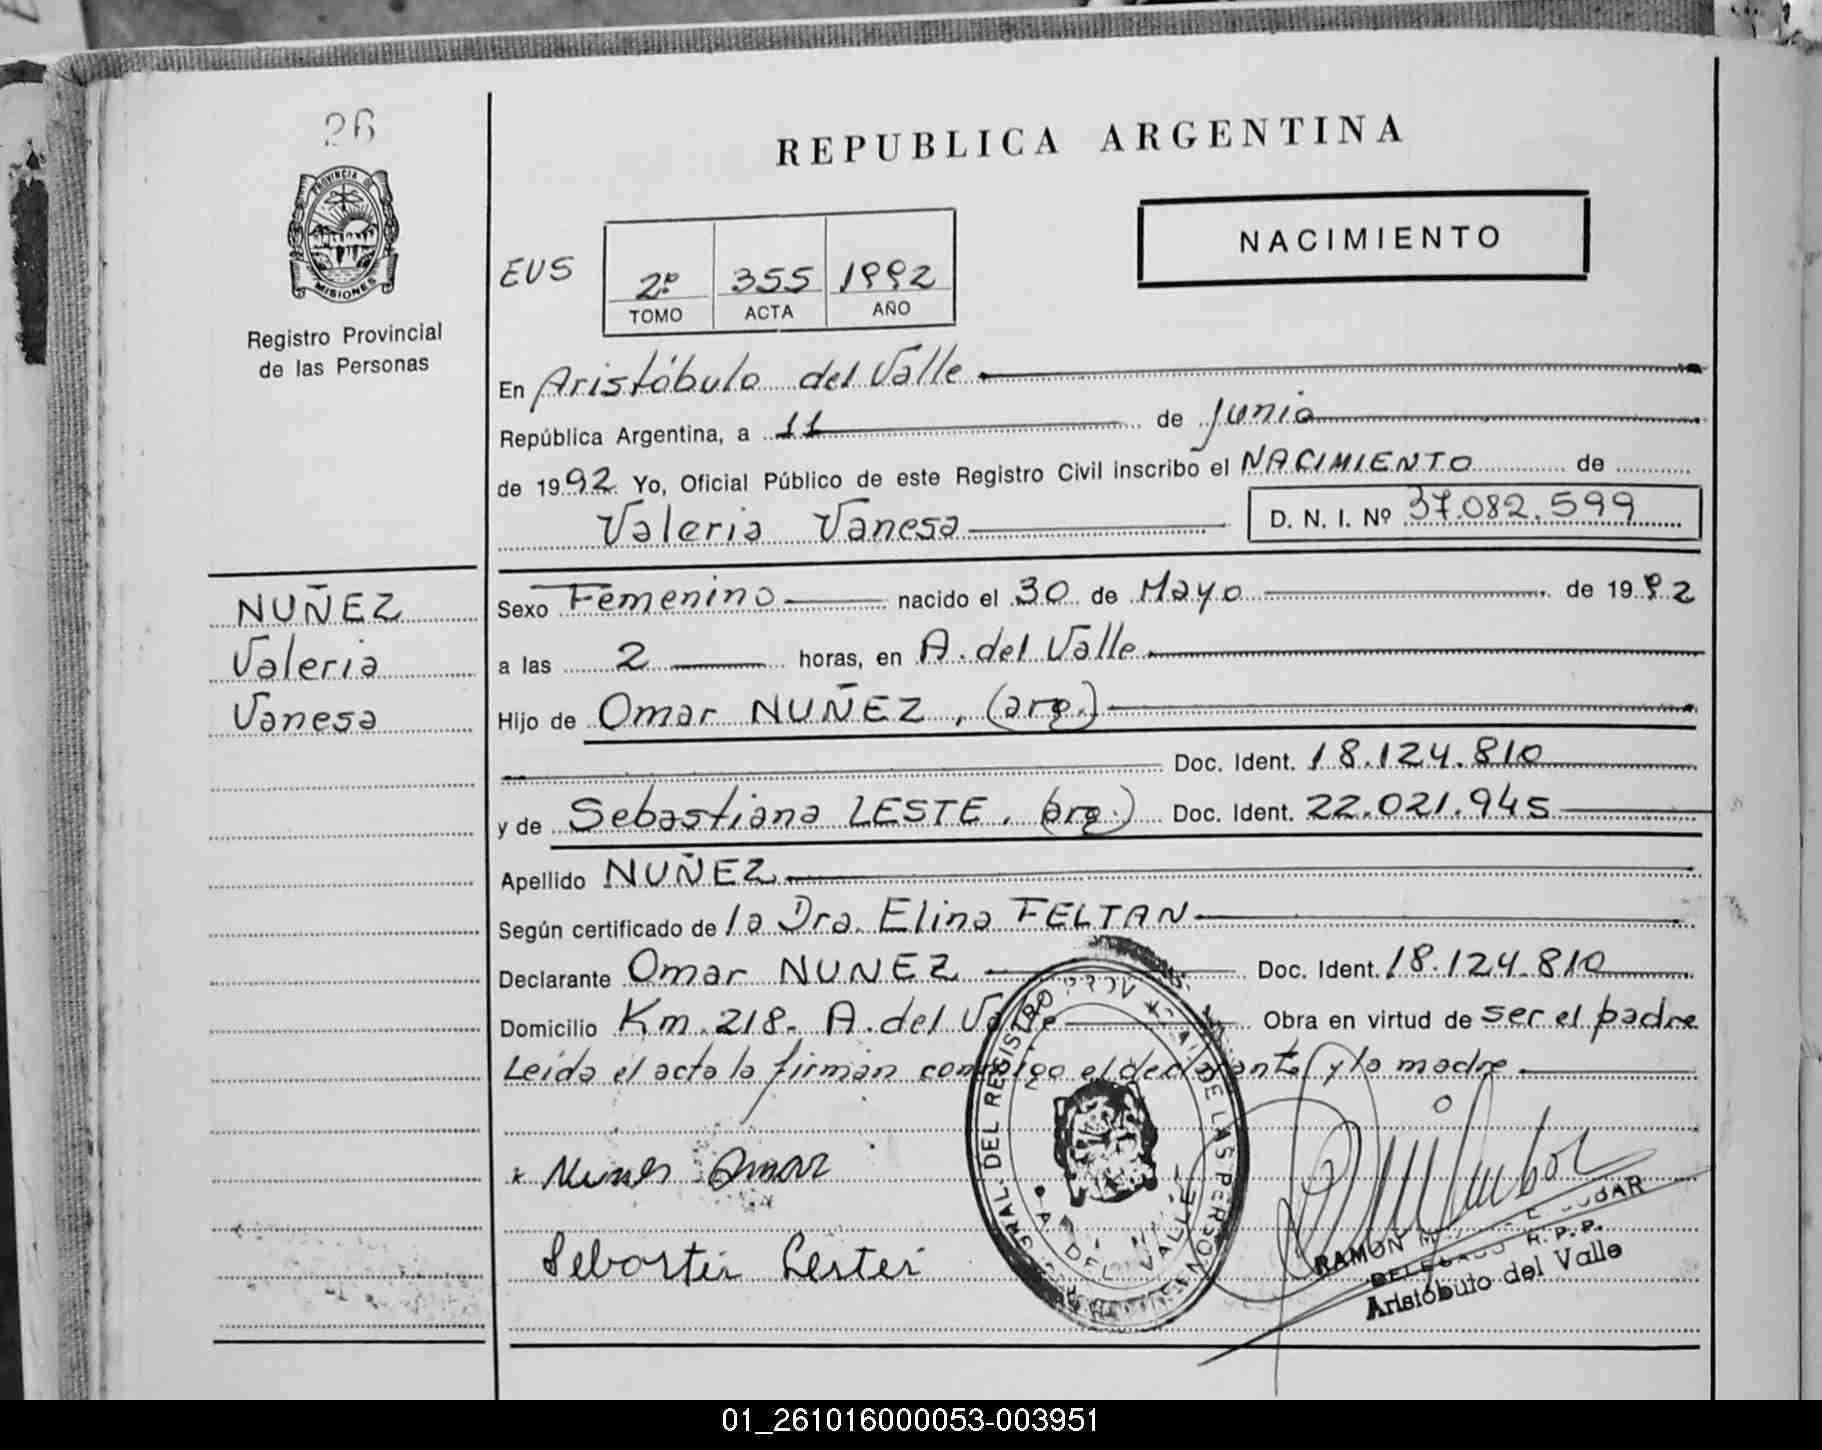 26
REPUBLICA ARGENTINA
PROVINCIA DE
MISIONES
NACIMIENTO
EUS
2º 355 1992
TOMO ACTA AÑO
Registro Provincial
de las Personas
En Aristóbulo del Valle
República Argentina, a 11 de Junio
de 1992 Yo, Oficial Público de este Registro Civil inscribo el NACIMIENTO de
Valeria Vanesa D. N. I. Nº 37.082.599
NUÑEZ
Valeria
Vanesa
Sexo Femenino nacido el 30 de Mayo de 1992
a las 2 horas, en A. del Valle
Hijo de Omar NUÑEZ, (arg.)
Doc. Ident. 18.124.810
y de Sebastiana LESTE, (arg.) Doc. Ident. 22.021.945
Apellido NUÑEZ
Según certificado de la Dra. Elina FELTAN
Declarante Omar NUNEZ Doc. Ident. 18.124.810
Domicilio Km. 218- A. del Valle Obra en virtud de ser el padre
Leída el acta la firman conmigo el declarante y la madre
Nunes Omar
GRAL. DEL REGISTRO PROV. DE LAS PERSONAS
A. DEL VALLE
RAMON
DELEGADO R.P.P.
Aristóbulo del Valle
01_261016000053-003951